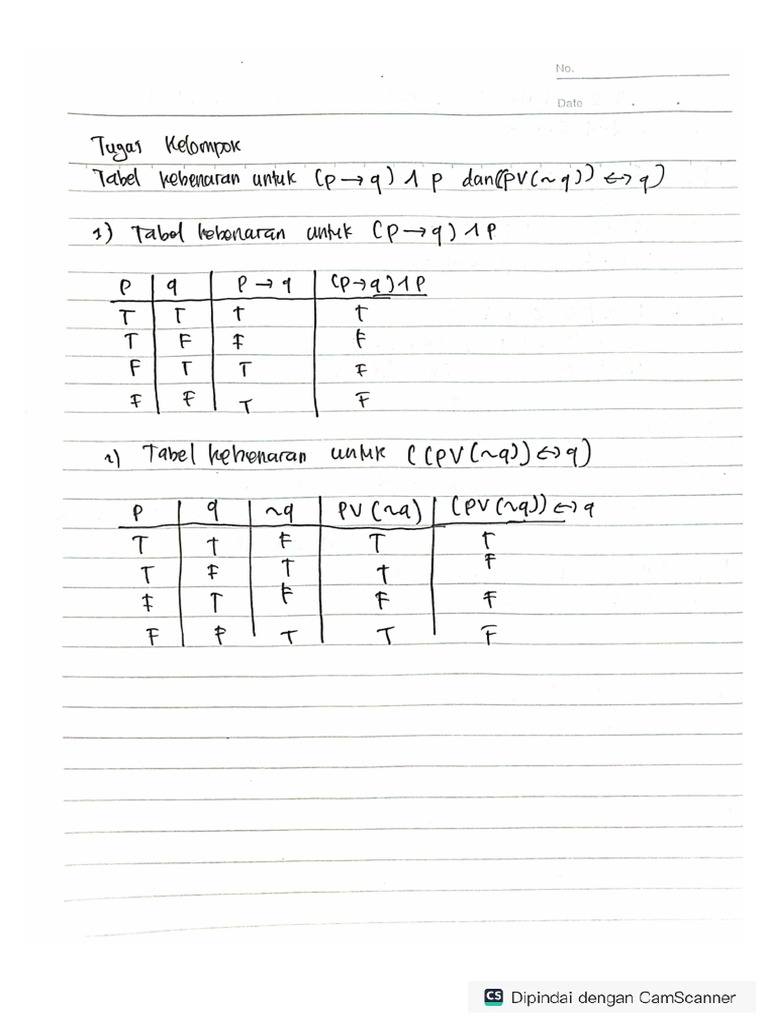 No.
Date
Tugas Kelompok
Tabel kebenaran untuk (p → q) ∧ p dan((pV(~q)) ↔ q)
1) Tabel kebenaran untuk (p → q) ∧ p
p q p → q (p→q)∧p
T T T T
T F F F
F T T F
F F T F
2) Tabel kebenaran untuk ((pV(~q)) ↔ q)
p q ~q pV(~q) (pV(~q)) ↔ q
T T F T T
T F T T F
F T F F F
F F T T F
CS Dipindai dengan CamScanner